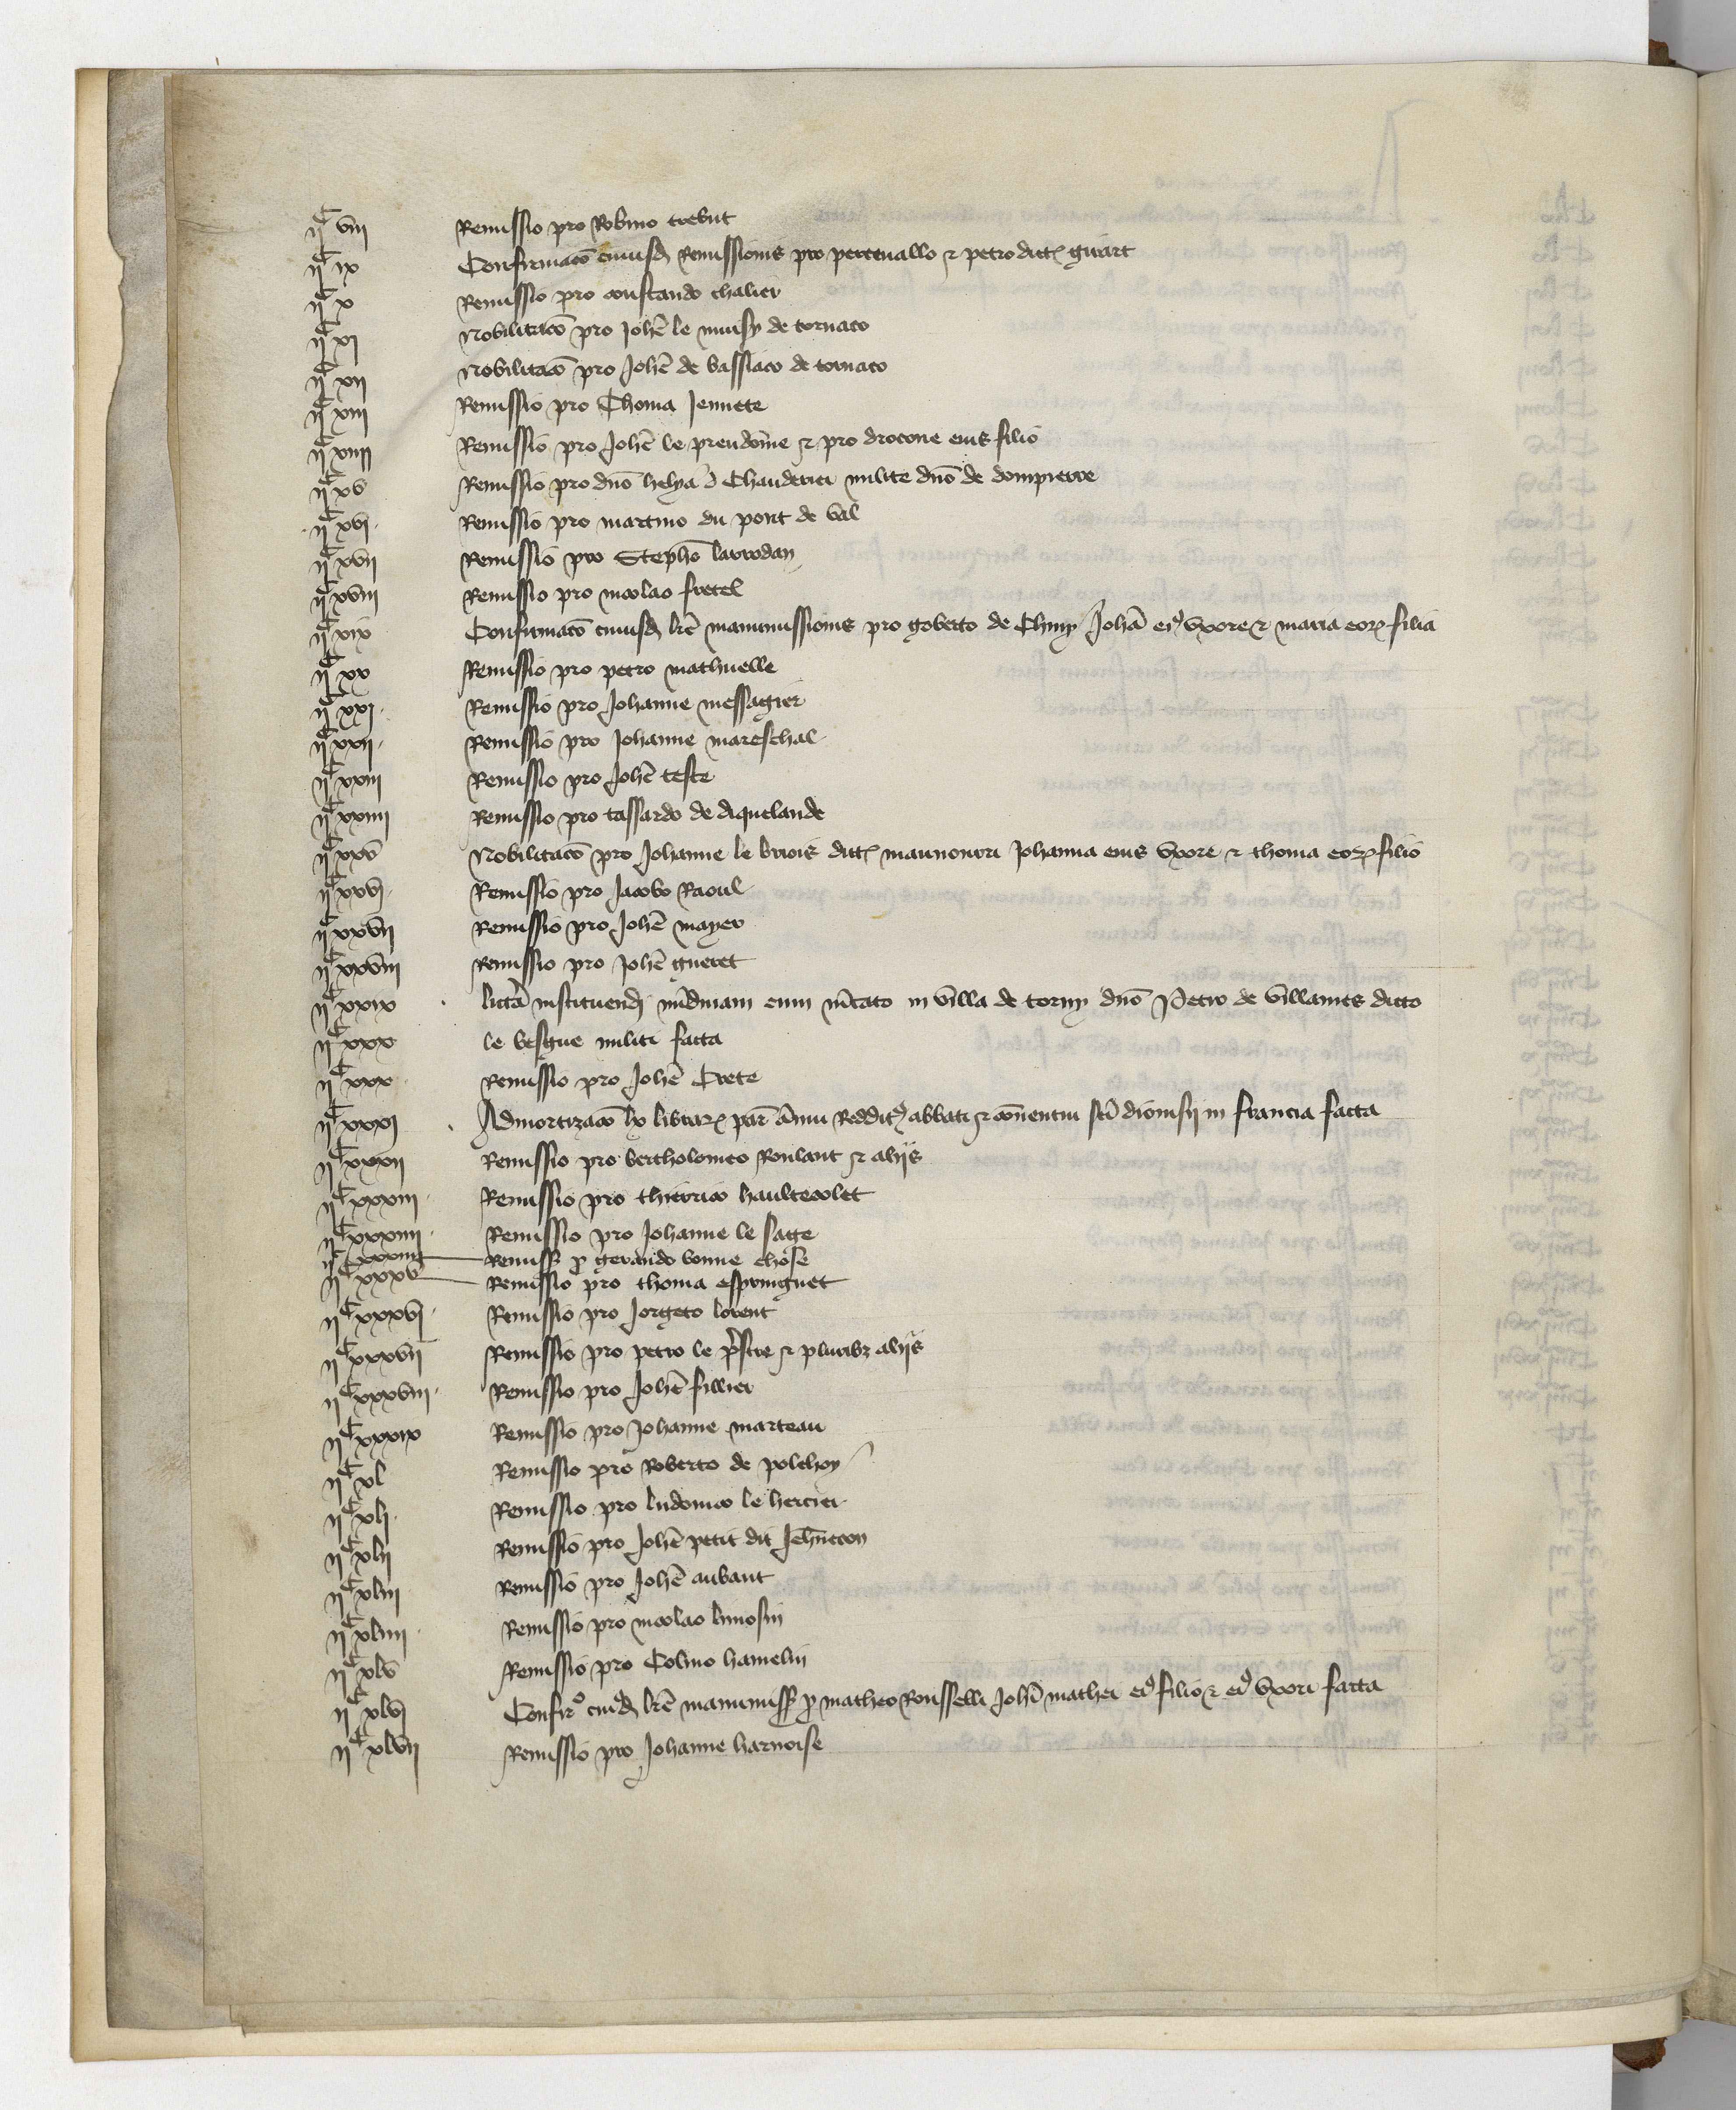 ii^C viii Remissio pro Robino trebut
ii^C ix Confirmacō cuiusd̄ Remissionis pro perrevallo & petro dict̄ girart
ii^C x Remissio pro constancio chalier
ii^C xi Nobilitacō pro Joh̄e le muisy de tornaco
ii^C xii Nobilitacō pro Joh̄e de vassiaco de tornaco
ii^C xiii Remissio pro Thoma Jennete
ii^C xiiii Remissio pro Joh̄e le preudomme & pro drocone eius filio
ii^C xv Remissio pro dn̄o helya de Chauderier milite dn̄o de dompierre
ii^C xvi Remissio pro martino du pont de val
ii^C xvii Remissio pro Steph̄o larrodan
ii^C xviii Remissio pro nicolao fretel
ii^C xix Confirmacō cuiusd̄ lrē manumissionis pro goberto de Chiny Joh̄a ei᾿ uxore & maria eor̄ filia
ii^C xx Remissio pro petro mathuelle
ii^C xxi Remissio pro Johanne messagier
ii^C xxii Remissio pro Johanne mareschal
ii^C xxiii Remissio pro Joh̄e teste
ii^C xxiiii Remissio pro tassardo de Aquelande
ii^C xxv Nobilitacō pro Johanne le briois dict̄ maunourri Johanna eius uxore & thoma eor̄ filio
ii^C xxvi Remissio pro Jacobo Raoul
ii^C xxvii Remissio pro Joh̄e mayer
ii^C xxviii Remissio pro Joh̄e gueret
ii^C xxix littā instituend̄ nūdinam cum m̄cato in villa de torny dn̄o Petro de villaines dicto
ii^C xxx le besgue militi facta
ii^C xxx Remissio pro Joh̄e Crete
ii^C xxxi Admortizacō lx librar̄ par̄ annui Reddit᾿ abbati & conventui sc̄i dionisii in francia facta
ii^C xxxii Remissio pro bertholomeo Roulant & aliis
ii^C xxxiii Remissio pro thierrico haultecolet
ii^C xxxiiii Remissio pro Johanne le sage
ii^C xxxiiii Remiss̄ p̄ gerardo bonne chose
ii^C xxxv Remissio pro thoma espringuet
ii^C xxxvi Remissio pro Jorgeto lorent
ii^C xxxvii Remissio pro petro le p̄stre & pluribz aliis
ii^C xxxviii Remissio pro Joh̄e fillier
ii^C xxxix Remissio pro Johanne marteau
ii^C xl Remissio pro Roberto de polehoy
ii^C xli Remissio pro ludovico le hercier
ii^C xlii Remissio pro Joh̄e petit dit Jeh̄neton
ii^C xliii Remissio pro Joh̄e aubaut
ii^C xliiii Remissio pro nicolao limosin
ii^C xlv Remissio pro Colino hamelin
ii^C xlvi Confir° cuiusd̄ lrē manumiss̄ p̄ matheo Rousselli Joh̄i mathei ei᾿ filio & ei᾿ uxori facta
ii^C xlvii Remissio pro Johanne harnoise